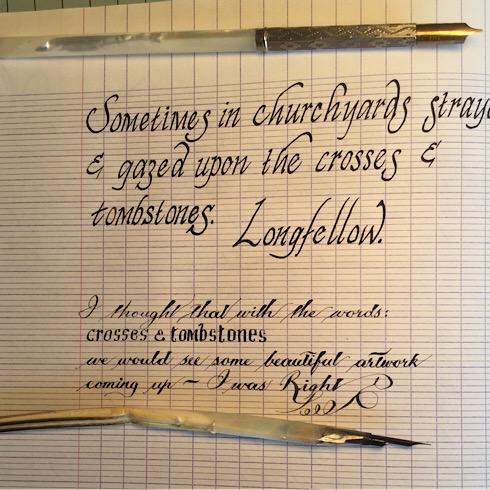 Sometimes in churchyards
& gazed upon the crosses &
tombstones. Longfellow.
I thought that with the words:
crosses & tombstones
we would see some beautiful artwork
coming up ~ I was Right